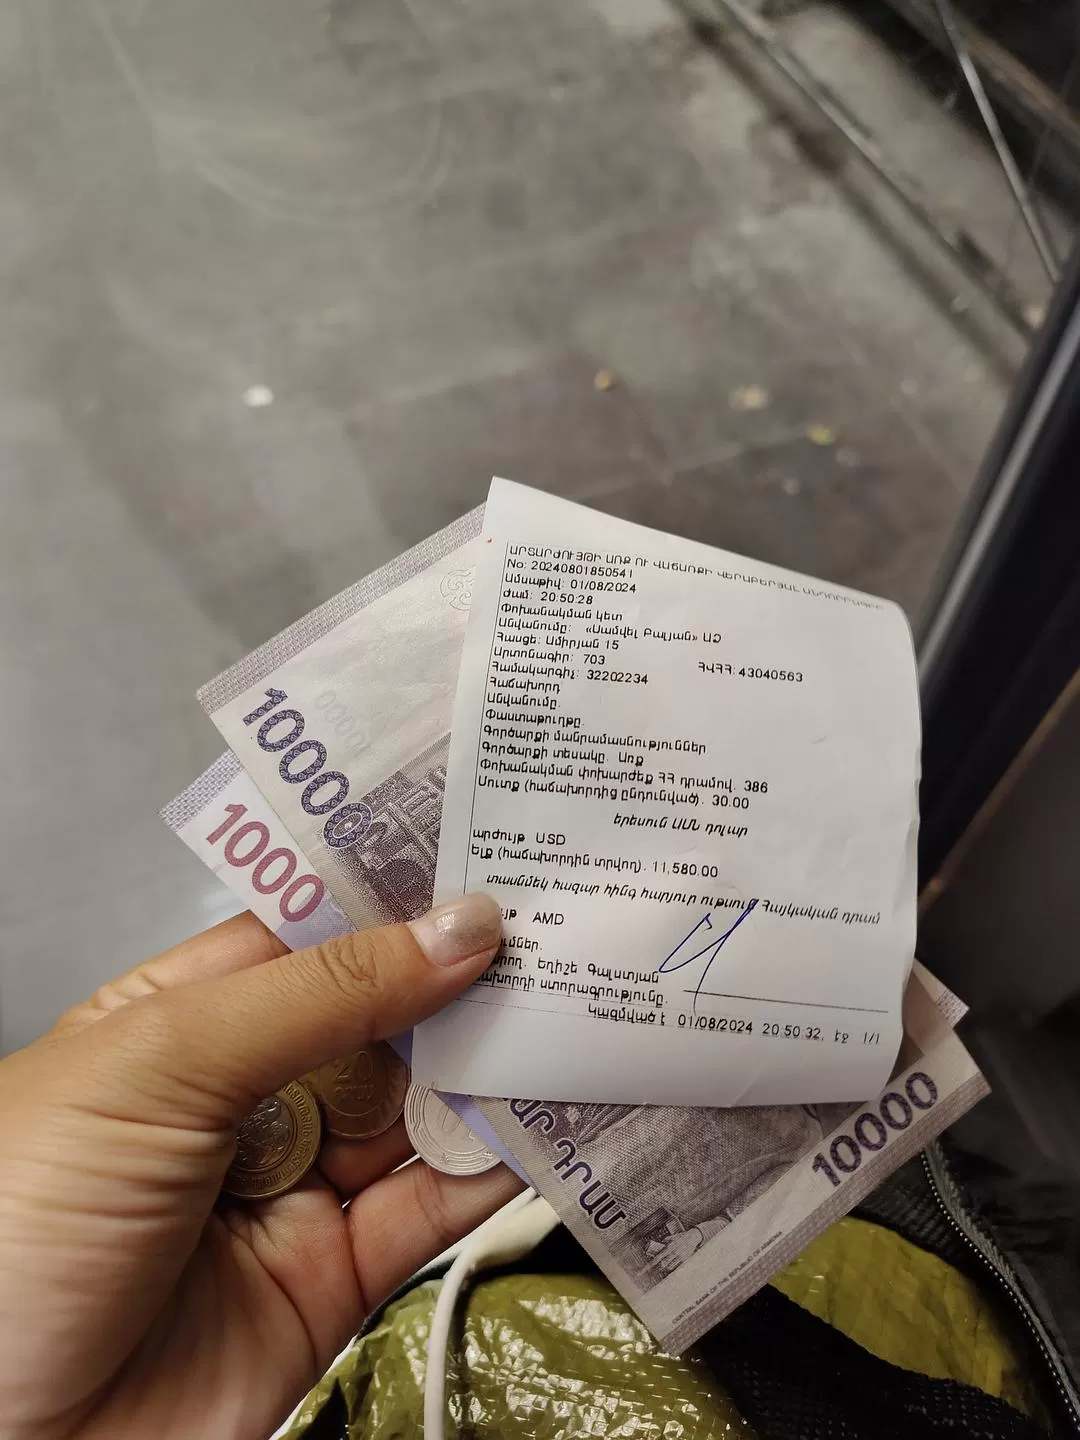 ԱՐՏԱՐԺՈՒՅԹԻ ԱՌՔ ՈՒ ՎԱՃԱՌՔԻ ՎԵՐԱԲԵՐՅԱԼ ԱՆԴՈՐՐԱԳԻՐ
No: 20240801850541
Ամսաթիվ: 01/08/2024
Ժամ: 20:50:28
Փոխանակման կետ
Անվանումը: «Սամվել Բալյան» ԱՁ
Հասցե: Ամիրյան 15
Արտոնագիր: 703 ՀՎՀՀ: 43040563
Համակարգիչ: 32202234
Հաճախորդ
Անվանումը.
Փաստաթուղթը.
Գործարքի մանրամասնություններ
Գործարքի տեսակը. Առք
Փոխանակման փոխարժեք ՀՀ դրամով. 386
Մուտք (հաճախորդից ընդունված). 30.00
երեսուն ԱՄՆ դոլար
արժույթ USD
Ելք (հաճախորդին տրվող). 11,580.00
տասնմեկ հազար հինգ հարյուր ութսուն Հայկական դրամ
յթ AMD
ումներ.
րող. Եղիշե Գալստյան
ախորդի ստորագրությունը.
Կազմված է 01/08/2024 20:50:32, էջ 1/1
10000
1000
20
ԱՐ ԴՐԱՄ
10000
CENTRAL BANK OF THE REPUBLIC OF ARMENIA